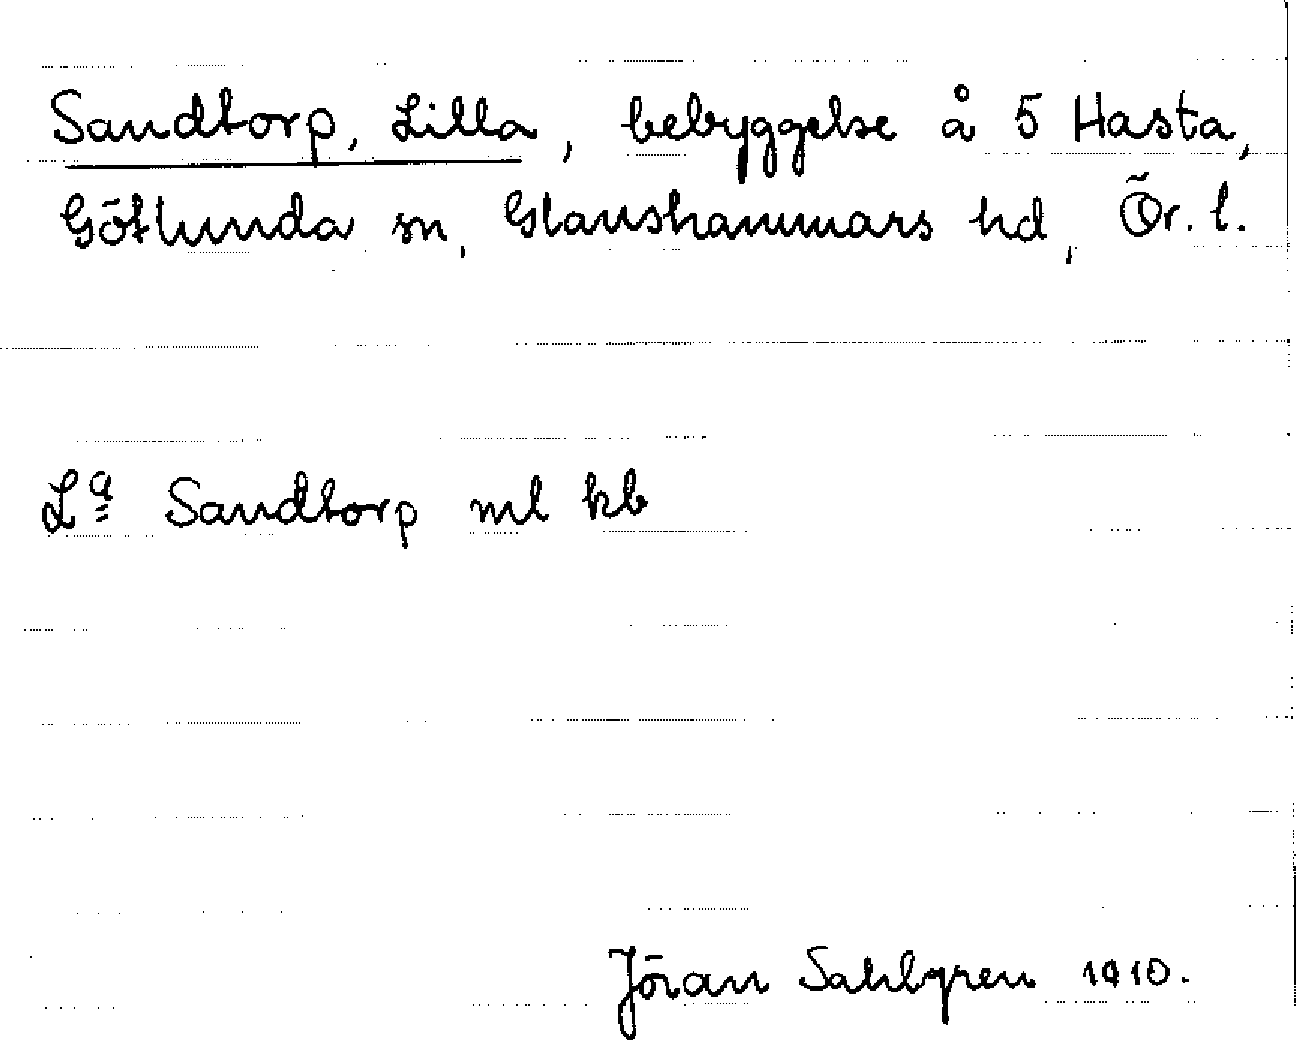 Sandtorp, Lilla, bebyggelse å 5 Hasta,
Götlunda sn, Glanshammars hd, Ör. l.
La Sandtorp ml kb
Jöran Sahlgren 1910.